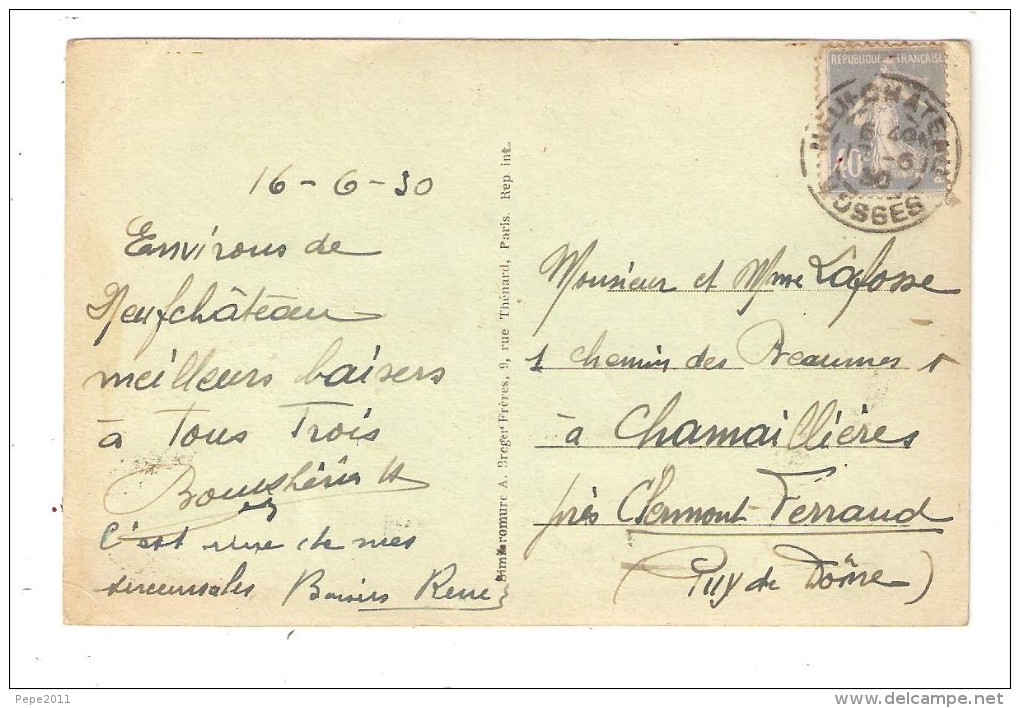 REPUBLIQUE FRANÇAISE
40c
NEUFCHÂTEAU
40
-6
30
VOSGES
16-6-30
Environs de
Neufchâteau
meilleurs baisers
à Tous Trois
C'est une de mes
succursales Baisers Rene
Simili-Bromure A. Breger Frères, 9, rue Thénard, Paris. Rep int.
Monsieur et Mme Lafosse
1 chemin des Beaumes 1
à Chamaillières
près Clermont-Ferrand
(Puy de Dôme)
Pepe2011
www.delcampe.net